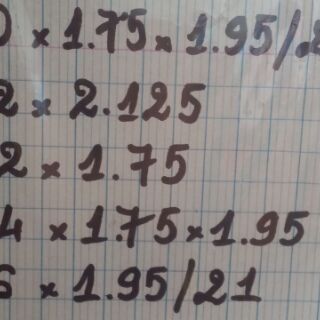 0 x 1.75 x 1.95/2
2 x 2.125
2 x 1.75
4 x 1.75 x 1.95
6 x 1.95/21